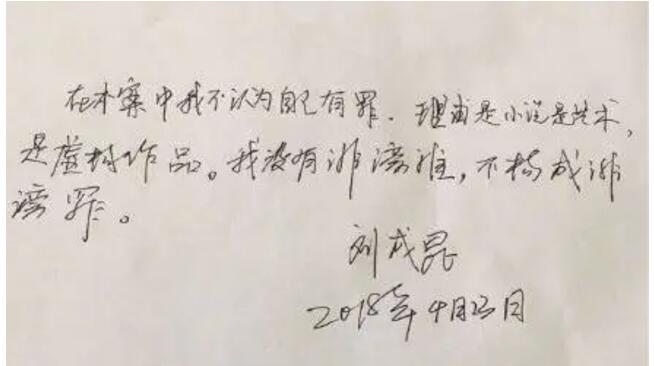 在本案中我不认为自己有罪。理由是小说是艺术，
是虚构作品。我没有诽谤谁，不构成诽
谤罪。
刘成昆
2018年4月23日